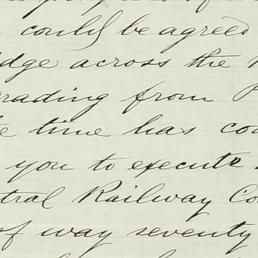 could be agreed
dge across the
rading from
e time has co
you to execute
tral Railway Co
of way seventy